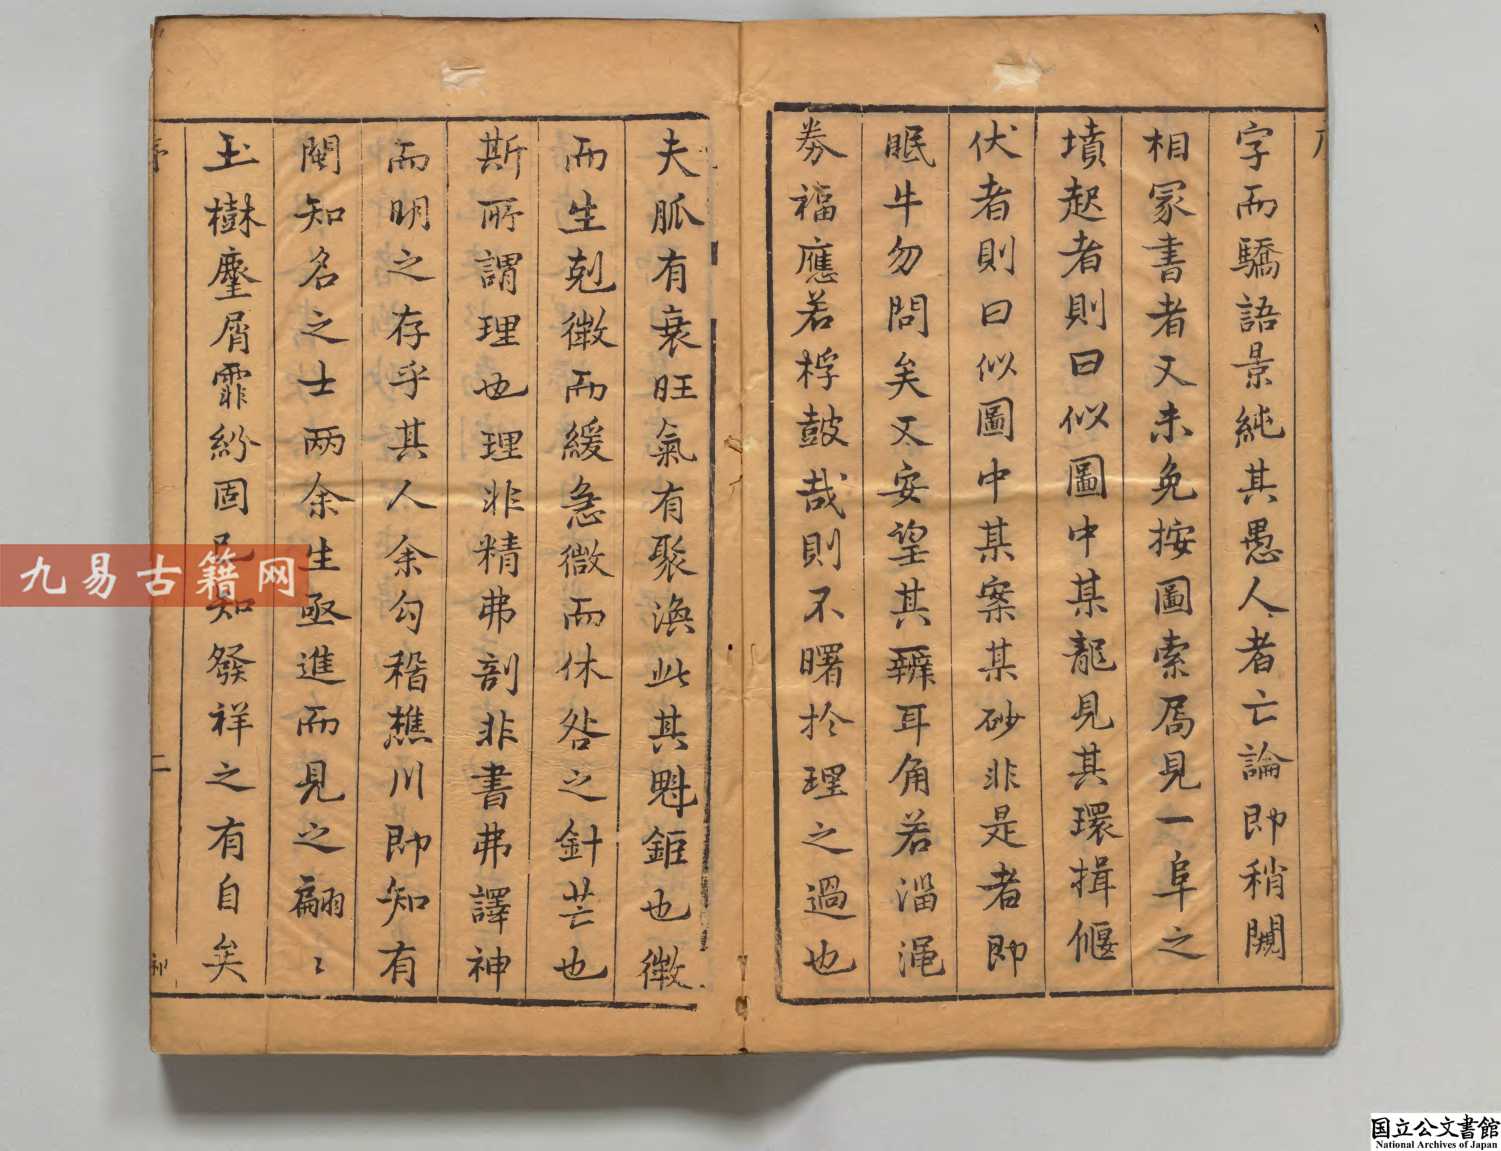 字而驕語景純其愚人者亡論即稍閱
相冢書者又未免按圖索局見一阜之
墳起者則曰似圖中某龍見其環揖偃
伏者則曰似圖中某案某砂非是者即
眠牛勿問矣又安望其辨耳角若淄澠
券福應若桴鼓哉則不曙於理之過也
夫脈有衰旺氣有聚渙此其魁鉅也徵
而生剋徵而緩急微而休咎之針芒也
斯所謂理也理非精弗剖非書弗譯神
而明之存乎其人余勾稽樵川即知有
閩知名之士兩余生亟進而見之翩〻
玉樹麈屑霏紛固已知發祥之有自矣
序
二
九易古籍网
国立公文書館
National Archives of Japan